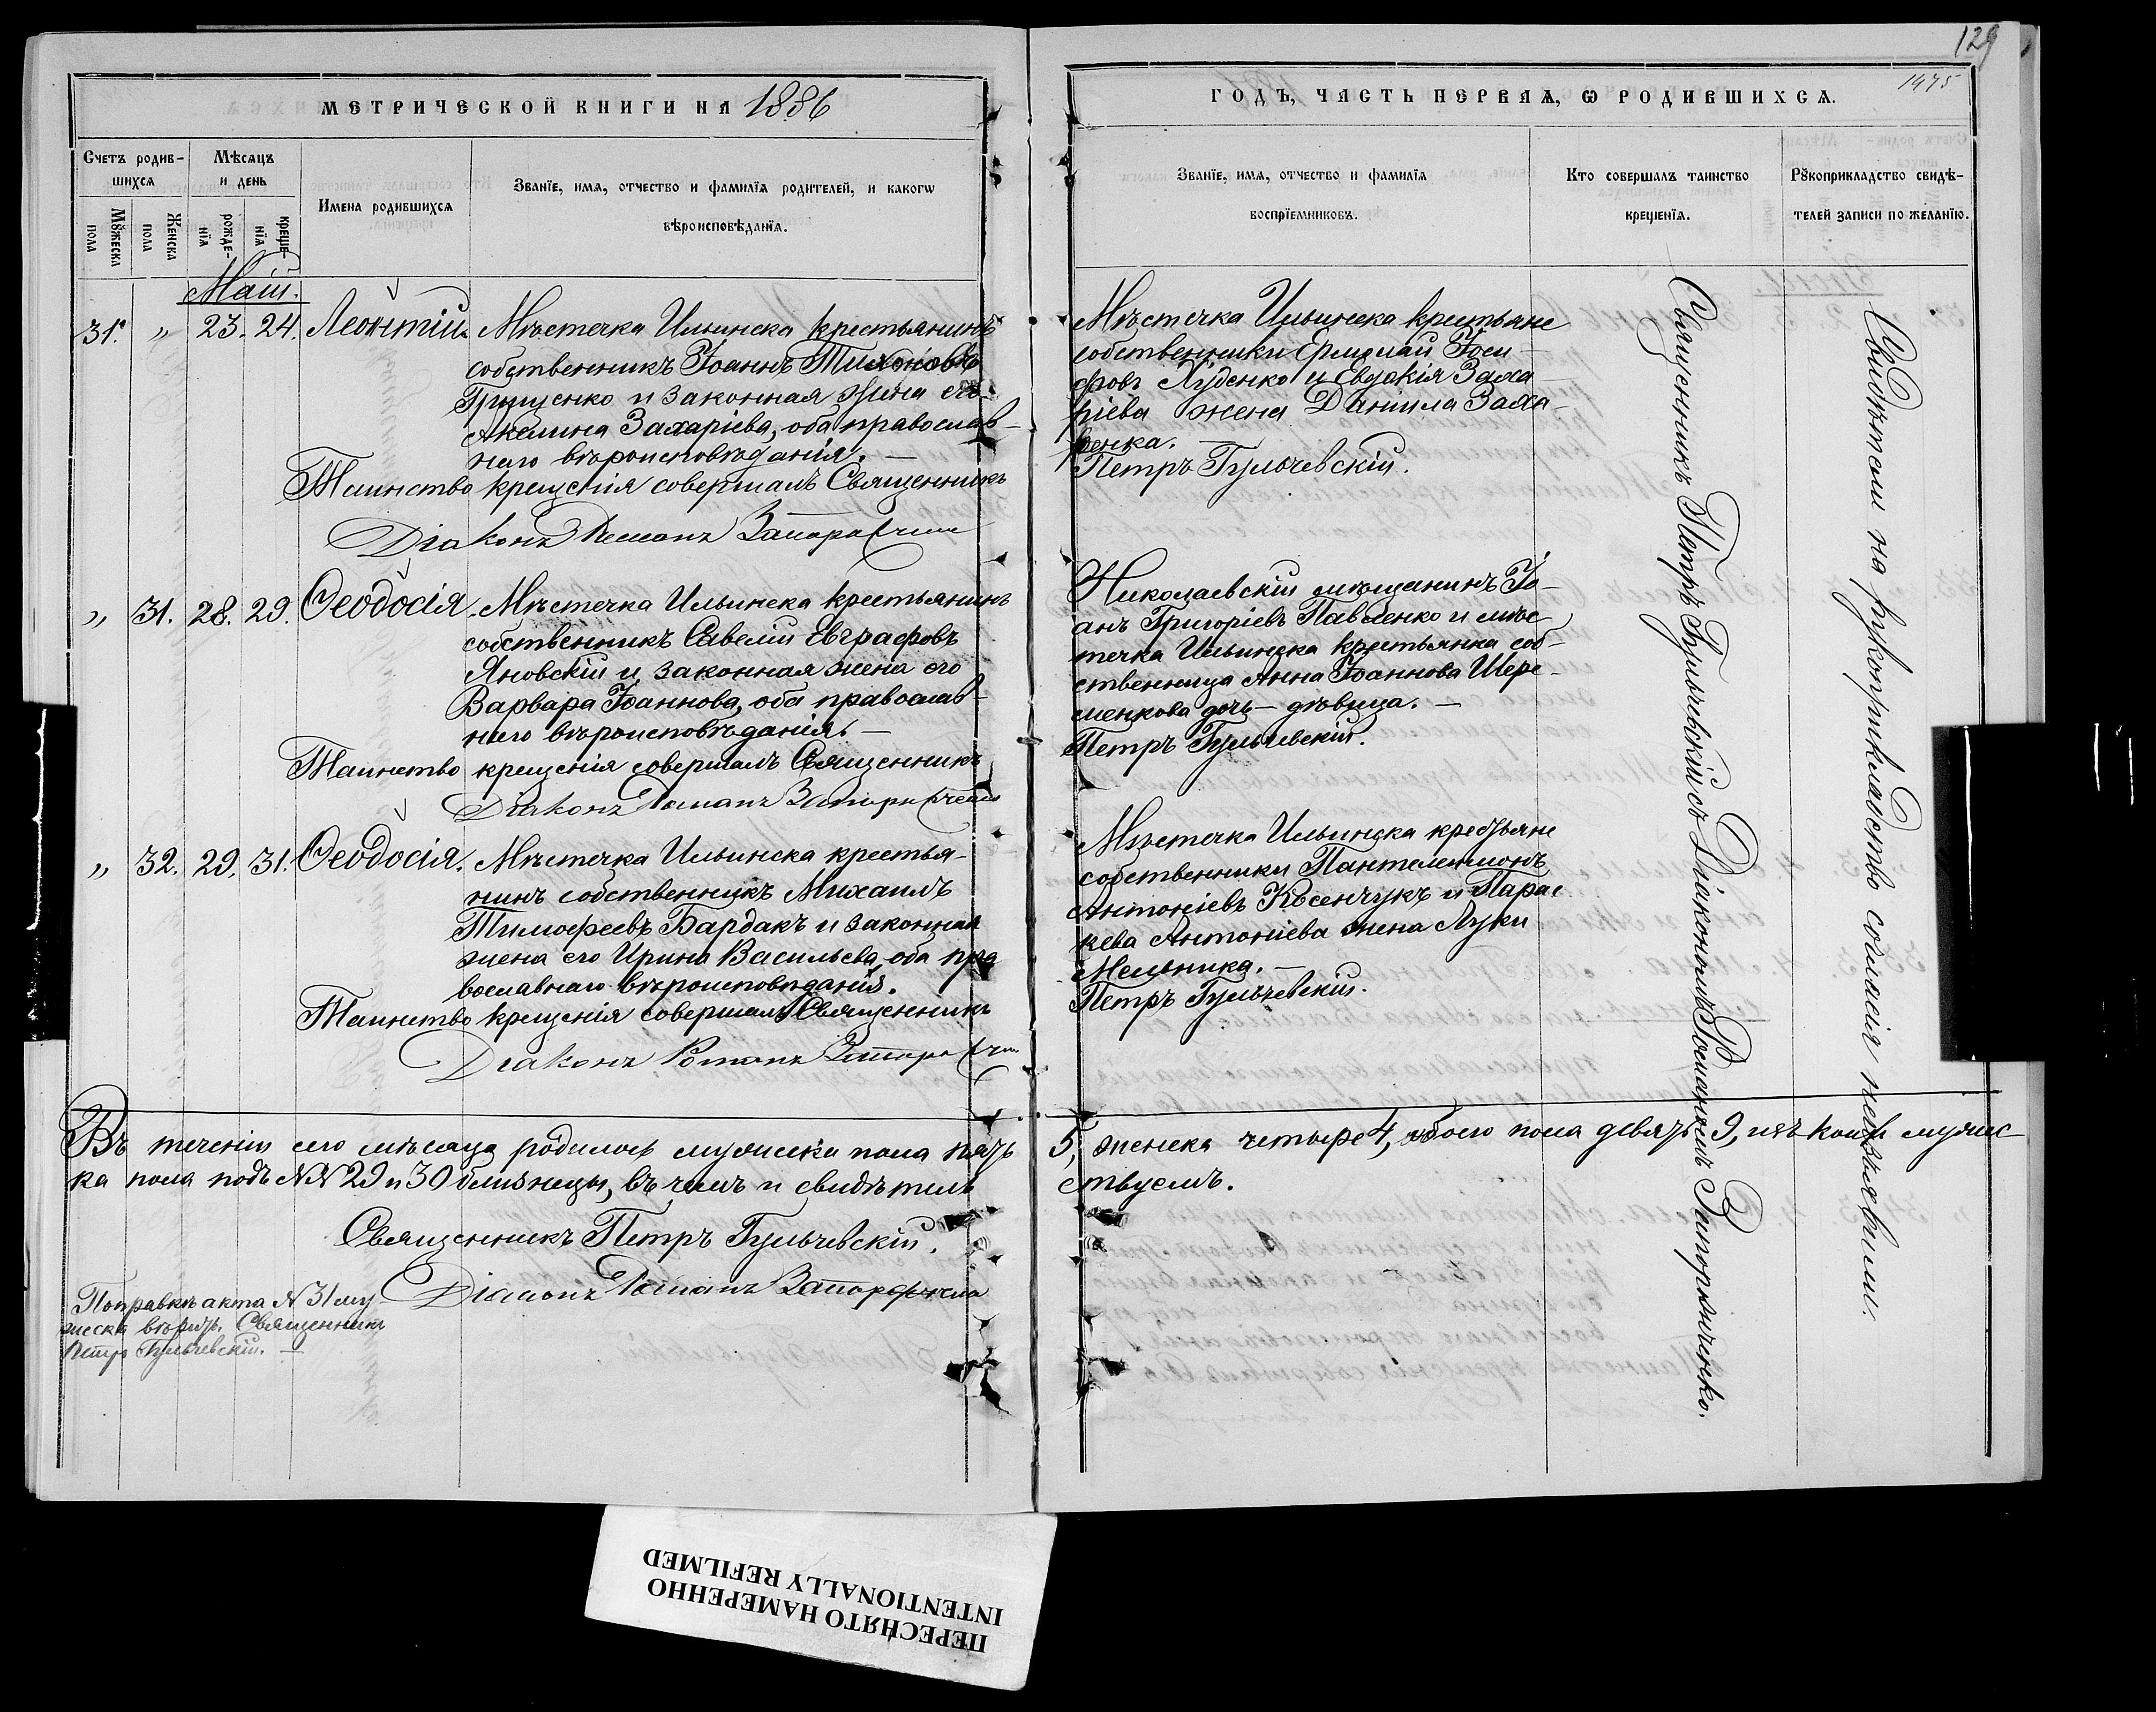 129
1475
МЕТРИЧЕСКОЙ КНИГИ НА 1886
ГОДЪ, ЧАСТЬ ПЕРВАЯ, Ѡ РОДИВШИХСЯ.
Счетъ родив-
шихся
Мꙋжеска
пола
Женска
пола
Мѣсяцъ
и день
рожде-
нїя
креще-
нїя
Имена родившихся
Званїе, имя, отчество и фамилїя родителей, и какогѡ
вѣроисповѣданїя.
Званїе, имя, отчество и фамилїя
воспрїемниковъ.
Кто совершалъ таинство
крещенїя.
Рꙋкоприкладство свидѣ-
телей записи по желанїю.
Маій.
31. „ 23. 24. Леонтій. Мѣстечка Ильинска крестьянинъ
собственникъ Іоаннъ Тихоновъ
Грищенко и законная жена его
Акелина Захаріева, оба православ-
наго вѣроисповѣданія. —
Таинство крещенія совершалъ Священникъ
Діаконъ Романъ
Мѣстечка Ильинска крестьяне
собственники Ермолай Іоси-
фовъ Луденко и Евдокія Заха-
ріева жена Даніила Заха-
ренка.
Петръ Гульчевскій.
„ 31. 28. 29. Ѳеодосія. Мѣстечка Ильинска крестьянинъ
собственникъ Савелій Евграфовъ
Яновскій и законная жена его
Варвара Іоаннова, оба православ-
наго вѣроисповѣданія. —
Таинство крещенія совершалъ Священникъ
Діаконъ Романъ
Николаевскій мѣщанинъ Іо-
анъ Григоріевъ Павленко и мѣс
течка Ильинска крестьянка соб-
ственница Анна Іоаннова Шере-
менкова дочь — дѣвица. —
Петръ Гульчевскій.
„ 32. 29. 31. Ѳеодосія. Мѣстечка Ильинска крестья-
нинъ собственникъ Михаилъ
Тимофеевъ Бардакъ и законная
жена его Ирина Васильева, оба пра
вославнаго вѣроисповѣданія.
Таинство крещенія совершалъ Священникъ
Діаконъ Романъ
Мѣстечка Ильинска крестьяне
собственники Пантелеимонъ
Антоніевъ Косенчукъ и Парас
кева Антоніева жена Луки
Мельника. —
Петръ Гульчевскій.
Священникъ Петръ Гульчевскій съ Діакономъ Романомъ
Свидѣтели на рукоприкладство согласія неизъявили.
Въ теченіи сего мѣсяца родилось мужеска пола пять 5, женска четыре 4, обоего пола девять 9, изъ коихъ мужес
ка пола подъ №№ 29 и 30 близнецы, въ чемъ и свидѣтель ствуемъ.
Священникъ Петръ Гульчевскій.
Діаконъ Романъ
Поправкѣ акта № 31 му-
жеска вѣрить. Священникъ
Петръ Гульчевскій. —
ПЕРЕСНЯТО НАМЕРЕННО
INTENTIONALLY REFILMED